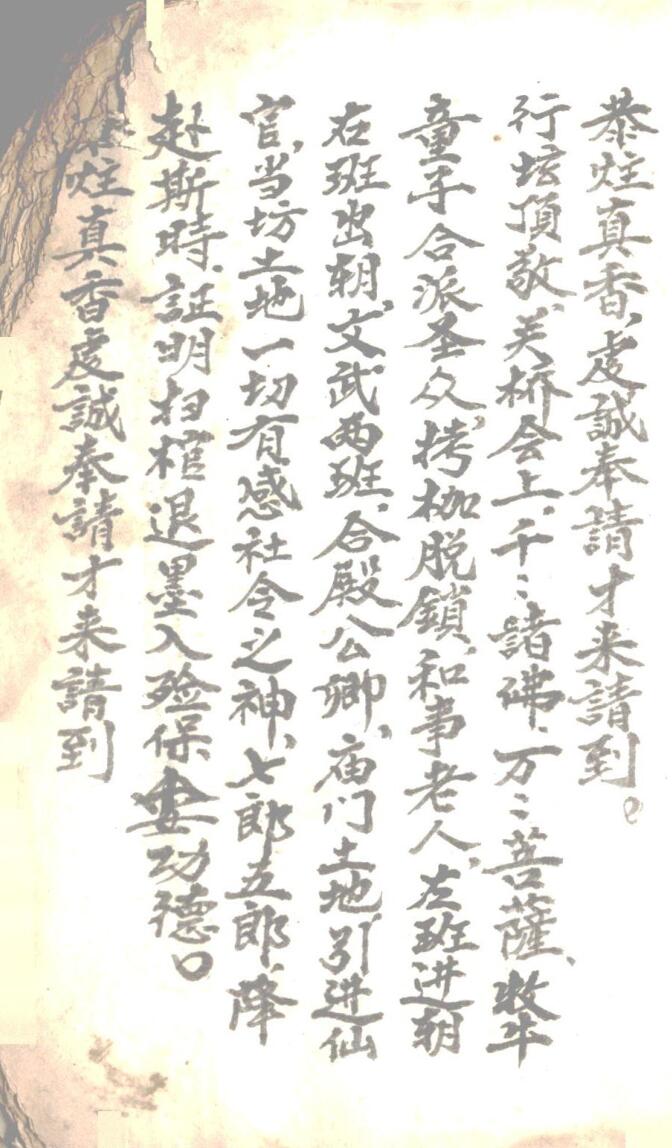 恭炷真香,虔誠奉請才来請到。
行坛頂敬、关桥会上,千:諸佛、万:菩薩、牧牛
童子合派圣众,拷枷脱鎖,和事老人,左班进朝
右班出朝,文武两班,合殿公卿,庙门土地,引进仙
官,当坊土地一切有感社令之神、七郎五郎、降
赴斯時、証明扫棺退墨入殓保安功德。
炷真香虔誠奉請才来請到